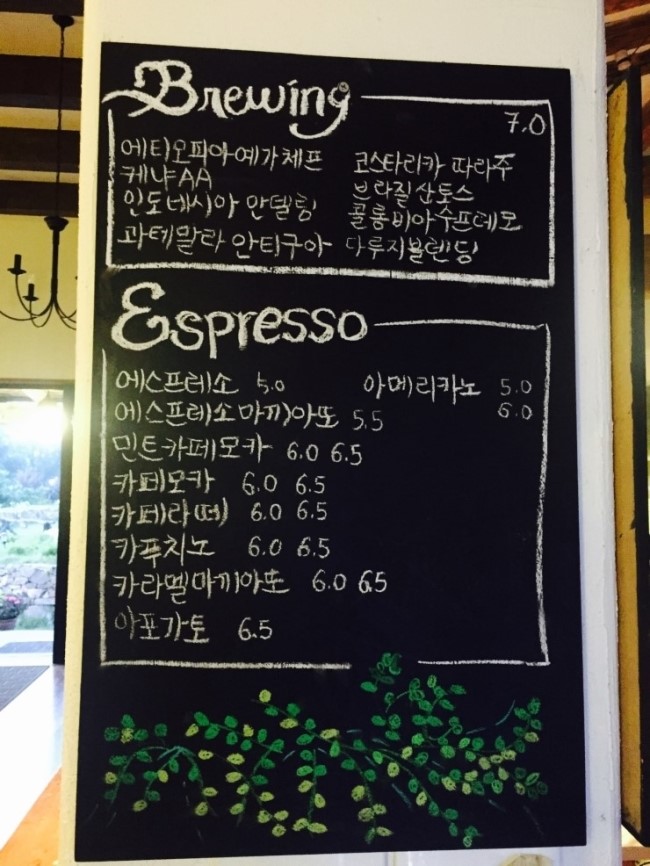 Brewing
7.0
에티오피아예가체프 코스타리카 따라주
케냐AA 브라질산토스
인도네시아 만델링 콜롬비아수프레모
과테말라 안티구아 다루지블렌딩
Espresso
에스프레소 5.0 아메리카노 5.0
에스프레소마끼아또 5.5 6.0
민트카페모카 6.0 6.5
카페모카 6.0 6.5
카페라떼 6.0 6.5
카푸치노 6.0 6.5
카라멜마끼아또 6.0 6.5
아포가토 6.5